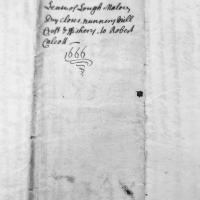 Lease of Lough Maloes
Dry closes nunnery hill
Croft & ffishery to Robert
Calcott
1666